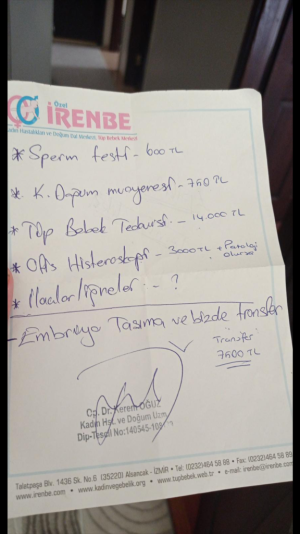 Özel
İRENBE
Kadın Hastalıkları ve Doğum Dal Merkezi, Tüp Bebek Merkezi
* Sperm testi - 600 TL
* K. Doğum muayenesi - 750 TL
* Tüp Bebek Tedavisi - 14.000 TL
* Ofis Histeroskopi - 3000 TL + Patoloji olursa
* İlaclar/iğneler - ?
- Embriyo Taşıma ve bizde transfer
"Transfer"
7500 TL
Op. Dr. Kerem OĞUZ
Kadın Hst. ve Doğum Uzm.
Dip-Tescil No:140345-108
Talatpaşa Blv. 1436 Sk. No.8 (35220) Alsancak - İZMİR • Tel: (0232)464 58 88 • Fax: (0232)464 58
www.irenbe.com • www.kadinvegebelik.org • www.tupbebek.web.tr • e-mail: irenbe@irenbe.com